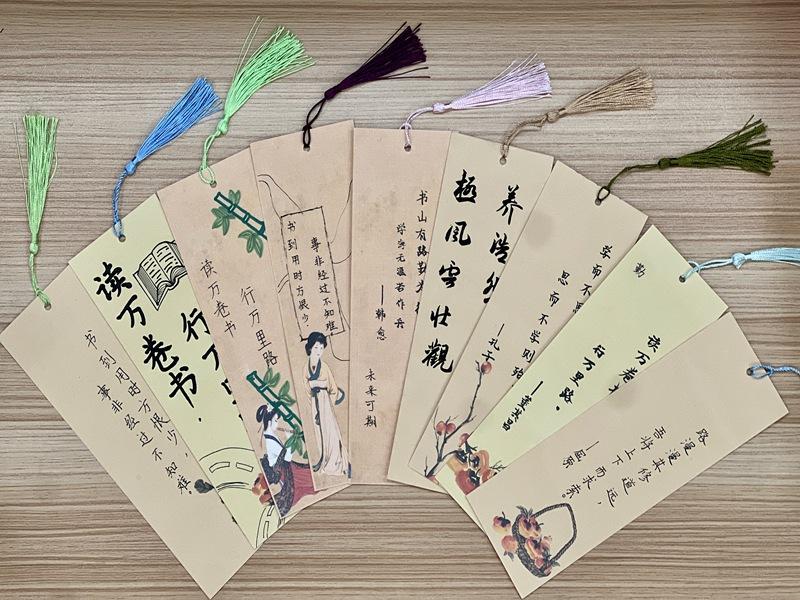 书到用时方恨少，
事非经过不知难。
读万卷书，
行万
读万卷书
行万里路
书到用时方恨少，
事非经过不知难
书山有路勤为
学海无涯苦作舟
——韩愈
未来可期
养浩然
極風雲壮觀
学而不思
思而不学则殆
——孔子
勤
读万卷
行万里路。
——董其昌
路漫漫其修道远，
吾将上下而求索。
——屈原